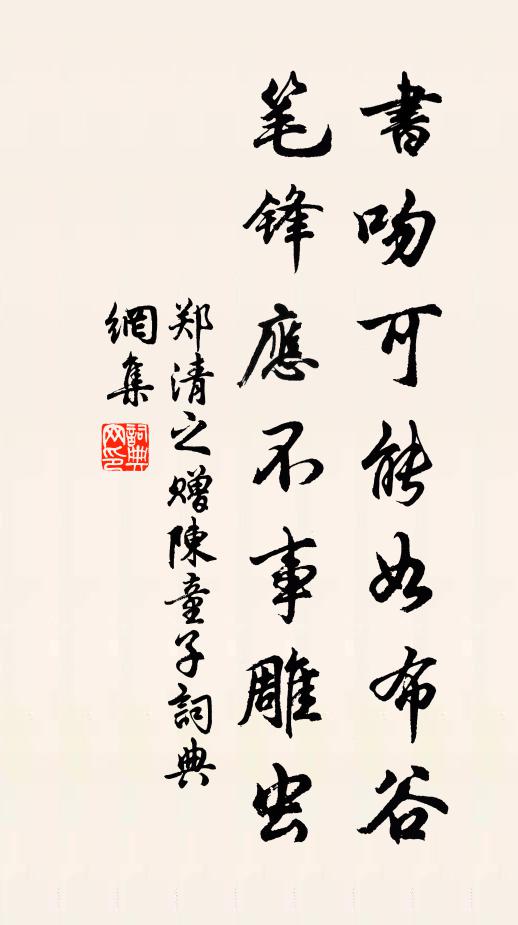 書吻可能如布谷
笔锋應不事雕虫
郑清之赠陳童子詞典
網集
詞典
网印